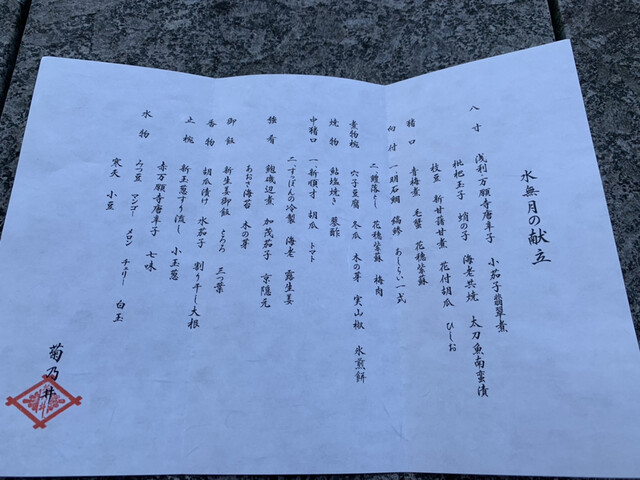 水無月の献立
八寸 浅利万願寺唐辛子 小茄子翡翠煮
枇杷玉子 蛸の子 海老共焼 太刀魚南蛮漬
枝豆 新甘藷甘煮 花付胡瓜 ひしお
猪口 青梅煮 毛蟹 花穂紫蘇
向付 一、明石鯛 縞鯵 あしらい一式
二、鱧落とし 花穂紫蘇 梅肉
煮物椀 穴子豆腐 冬瓜 木の芽 実山椒 氷煎餅
焼物 鮎塩焼き 蓼酢
中猪口 一、新順才 胡瓜 トマト
二、すっぽんの冷製 海老 露生姜
強肴 鮑磯辺煮 加茂茄子 京隠元
あおさ海苔 木の芽
御飯 新生姜御飯 とろろ 三つ葉
香物 胡瓜漬け 水茄子 割り干し大根
止椀 新玉葱すり流し 小玉葱
赤万願寺唐辛子 七味
水物 みつ豆 マンゴー メロン チェリー 白玉
寒天 小豆
菊乃井